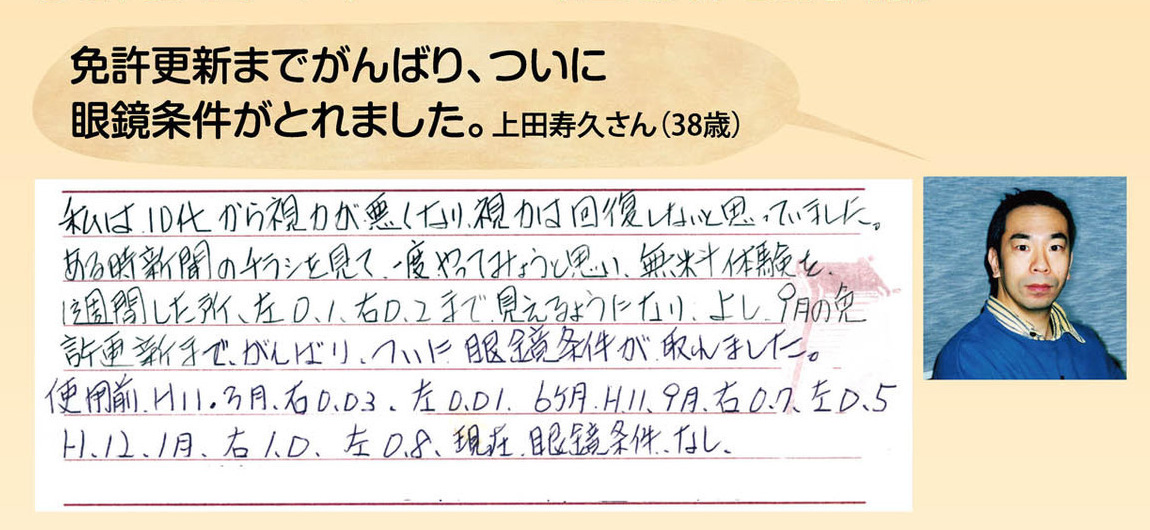 免許更新までがんばり、ついに
眼鏡条件がとれました。上田寿久さん（38歳）
私は10代から視力が悪くなり、視力は回復しないと思っていました。
ある時新聞のチラシを見て、一度やってみようと思い、無料体験を、
1週間した所、左0.1、右0.2まで見えるようになり、よし、9月の免
許更新まで、がんばり、ついに眼鏡条件が取れました。
使用前、H11.3月、右0.03、左0.01、6ヶ月、H11、9月、右0.7、左0.5
H.12、1月、右1.0、左0.8、現在、眼鏡条件、なし、